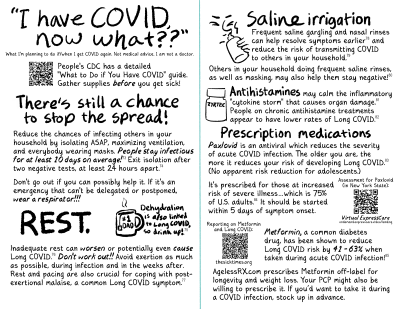 "I have COVID,
now what??"
What I'm planning to do if/when I get COVID again. Not medical advice. I am not a doctor.
People's CDC has a detailed
"What to Do if You Have COVID" guide.
Gather supplies before you get sick!
There's still a chance
to stop the spread!
Reduce the chances of infecting others in your
household by isolating ASAP, maximizing ventilation,
and everybody wearing masks. People stay infectious
for at least 10 days on average! Exit isolation after
two negative tests, at least 24 hours apart.
Don't go out if you can possibly help it. If it's an
emergency that can't be delegated or postponed,
wear a respirator!!!
REST.
Dehydration
is also linked
to Long COVID,
so drink up!
Inadequate rest can worsen or potentially even cause
Long COVID. Don't work out!! Avoid exertion as much
as possible, during infection and in the weeks after.
Rest and pacing are also crucial for coping with post-
exertional malaise, a common Long COVID symptom.
Saline irrigation
Frequent saline gargling and nasal rinses
can help resolve symptoms earlier and
reduce the risk of transmitting COVID
to others in your household.
Others in your household doing frequent saline rinses,
as well as masking may also help them stay negative!
ZYRTEC
Antihistamines may calm the inflammatory
"cytokine storm" that causes organ damage.
People on chronic antihistamine treatments
appear to have lower rates of Long COVID.
Prescription medications
Paxlovid is an antiviral which reduces the severity
of acute COVID infection. The older you are, the
more it reduces your risk of developing Long COVID.
(No apparent risk reduction for adolescents.)
It's prescribed for those at increased
risk of severe illness...which is 75%
of U.S. adults. It should be started
within 5 days of symptom onset.
Assessment for Paxlovid
(in New York State):
Virtual ExpressCare
Reporting on Metformin
and Long COVID:
thesicktimes.org
Metformin, a common diabetes
drug, has been shown to reduce
Long COVID risk by 41-63% when
taken during acute COVID infection!
AgelessRX.com prescribes Metformin off-label for
longevity and weight loss. Your PCP might also be
willing to prescribe it. If you'd want to take it during
a COVID infection, stock up in advance.